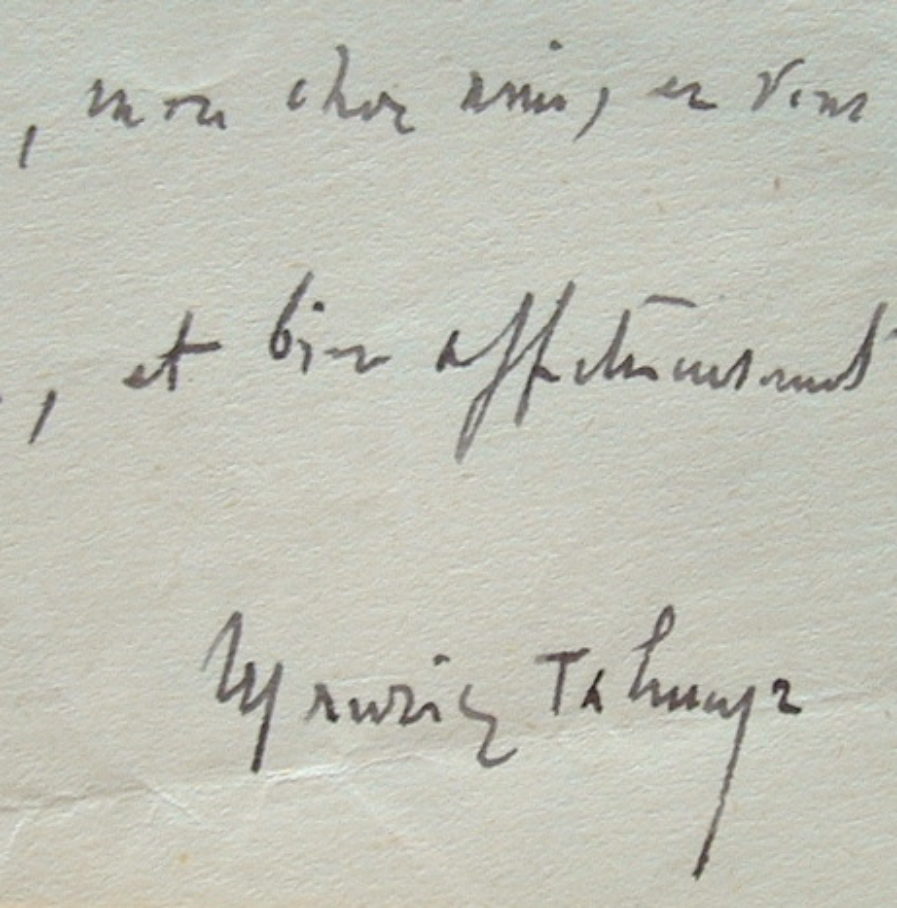 , mon cher ami, en vous
, et bien affectueusement
Maurice Talmeyr